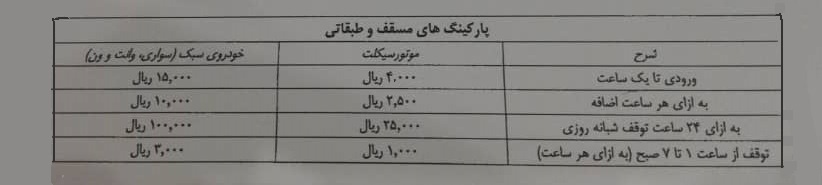 پارکینگ های مسقف و طبقاتی
شرح موتورسیکلت خودروی سبک (سواری، وانت و ون)
ورودی تا یک ساعت ۴،۰۰۰ ریال ۱۵،۰۰۰ ریال
به ازای هر ساعت اضافه ۲،۵۰۰ ریال ۱۰،۰۰۰ ریال
به ازای ۲۴ ساعت توقف شبانه روزی ۲۵،۰۰۰ ریال ۱۰۰،۰۰۰ ریال
توقف از ساعت ۱ تا ۷ صبح (به ازای هر ساعت) ۱،۰۰۰ ریال ۳،۰۰۰ ریال